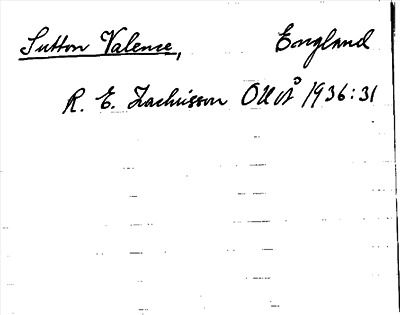 Sutton Valence, England
R. E. Zachrisson 1936:31